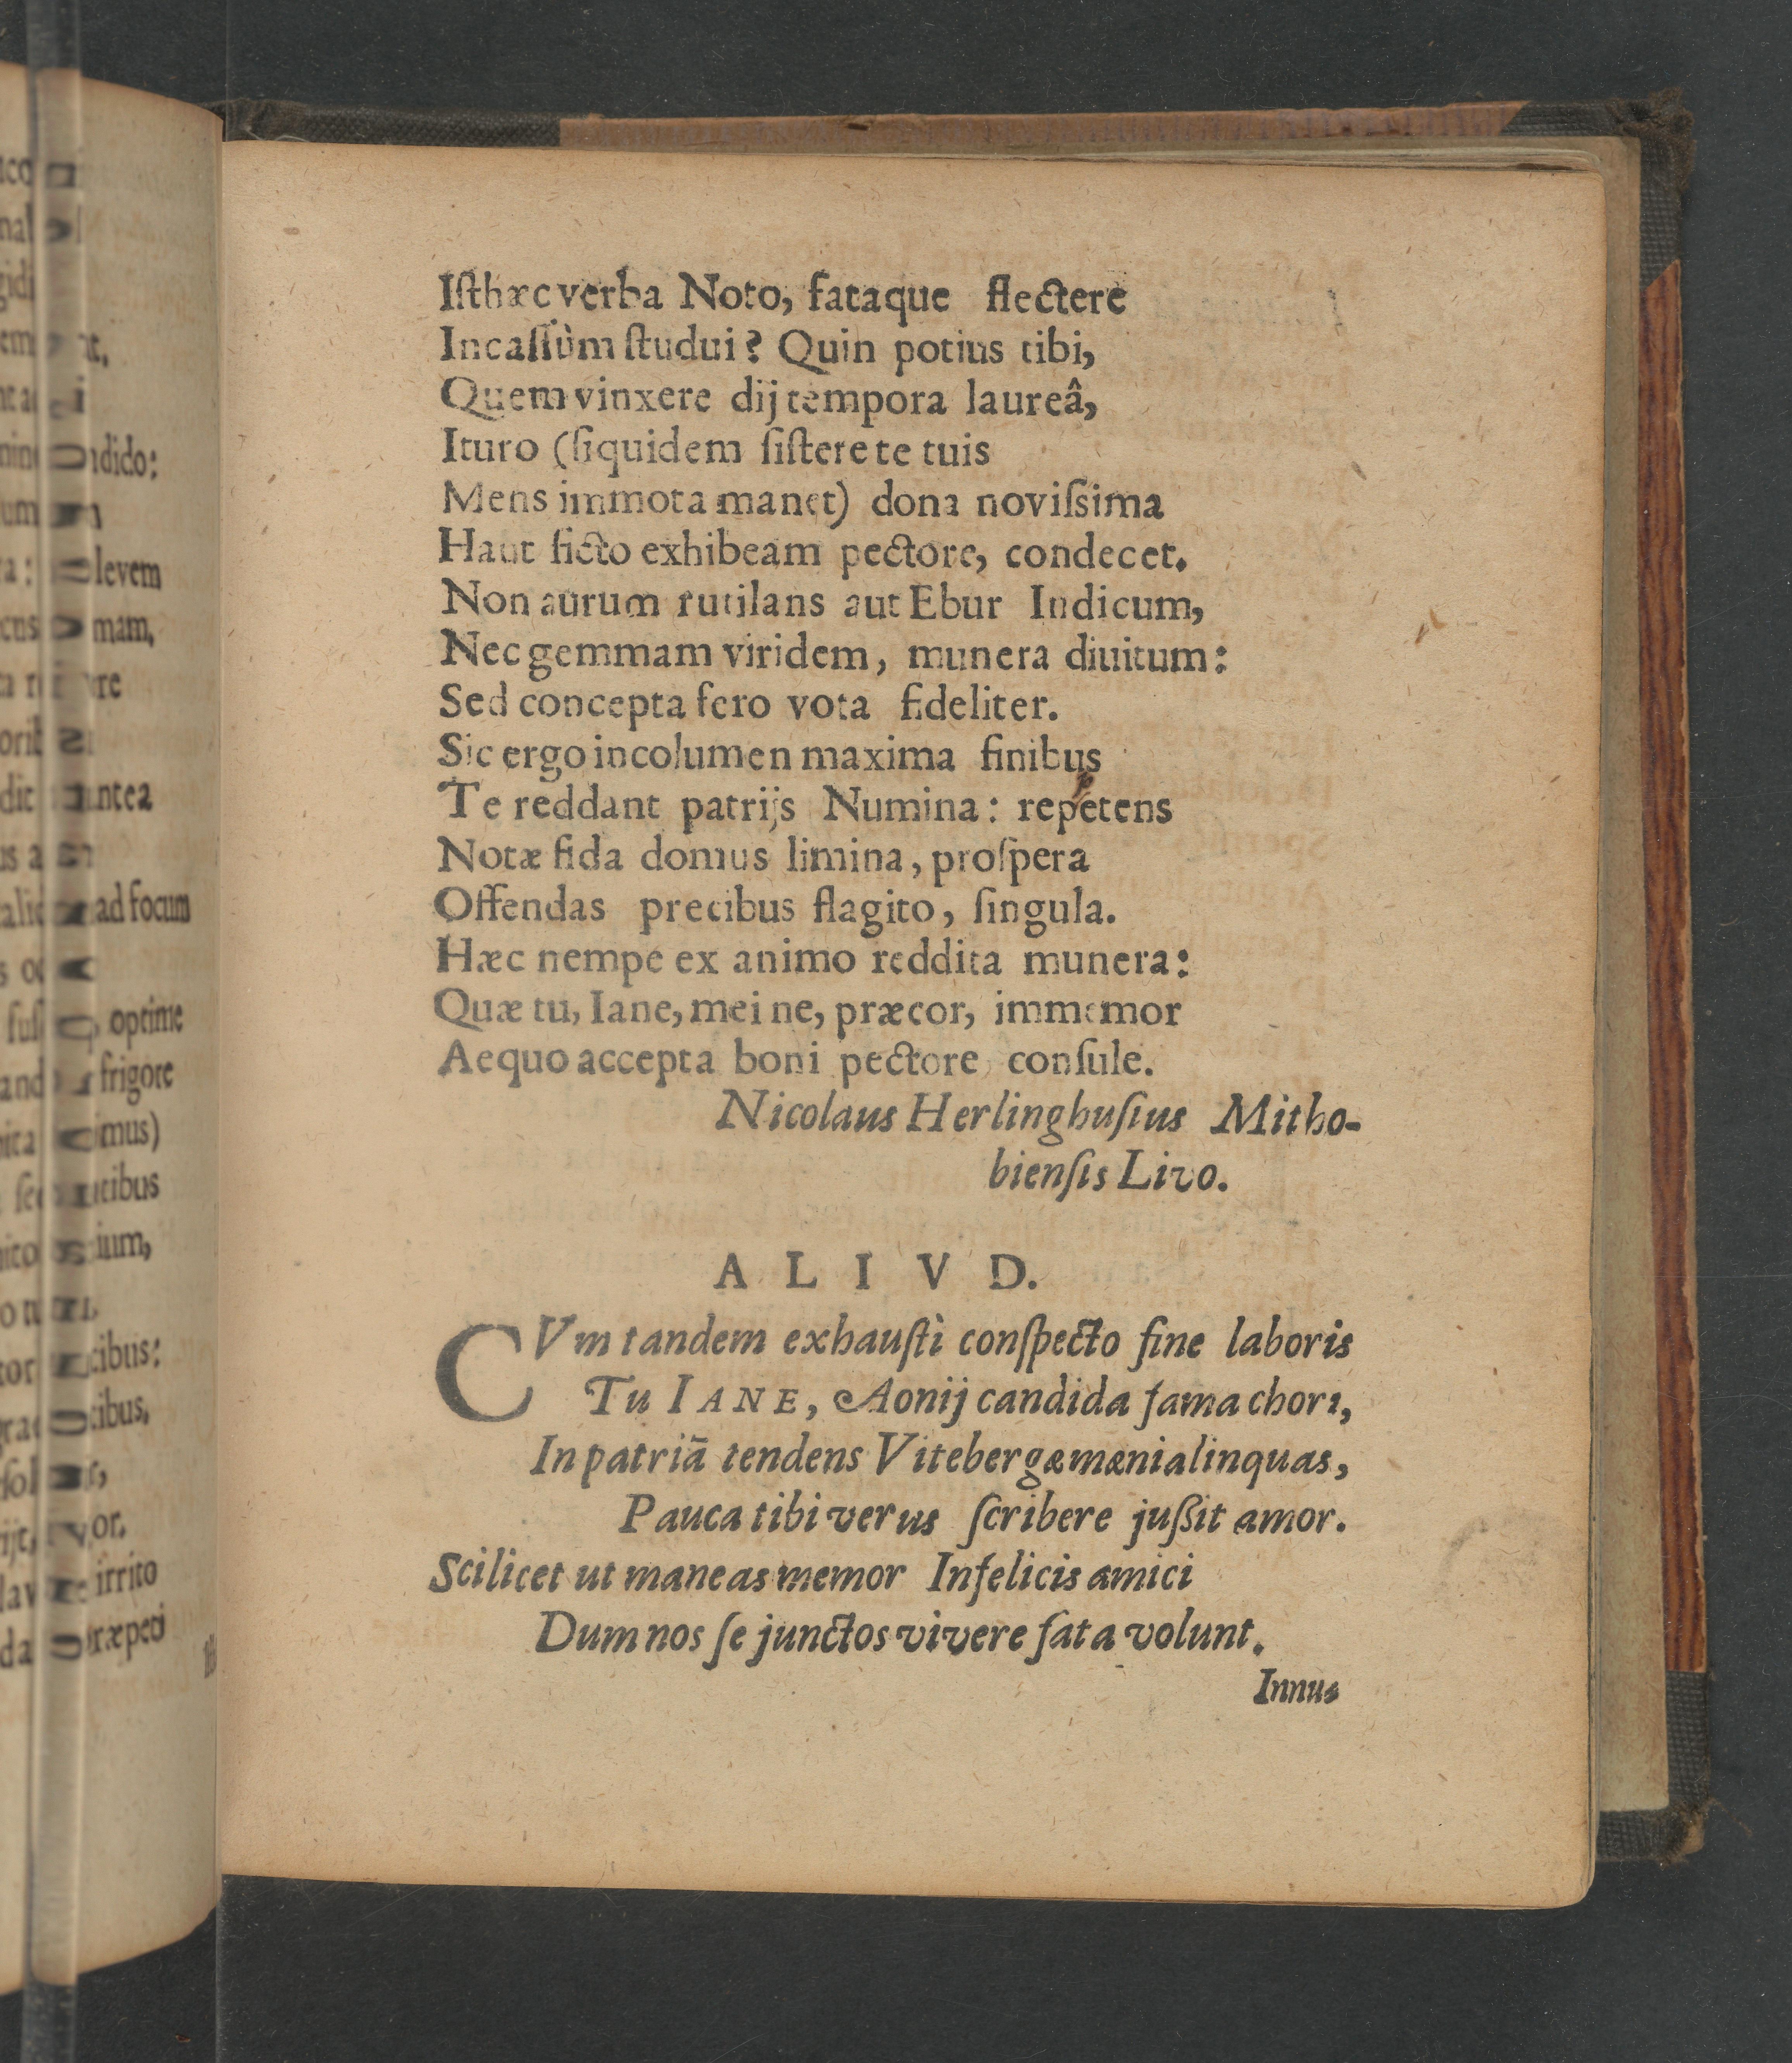 Iſthæc verba Noto, fataque flectere
Incaſſùm ſtudui? Quin potius tibi,
Quem vinxere dij tempora laureâ,
Ituro (ſiquidem ſiſtere te tuis
Mens immota manet) dona noviſsima
Haut ficto exhibeam pectore, condecet.
Non aurum rutilans aut Ebur Indicum,
Nec gemmam viridem, munera diuitum:
Sed concepta fero vota fideliter.
Sic ergo incolumen maxima finibus
Te reddant patrijs Numina: repetens
Notæ fida domus limina, proſpera
Offendas precibus flagito, ſingula.
Hæc nempe ex animo reddita munera:
Quæ tu, Iane, mei ne, præcor, immemor
Aequo accepta boni pectore conſule.
Nicolaus Herlinghuſius Mitho-
bienſis Livo.
ALIVD.
CVm tandem exhauſtì conſpecto fine laboris
Tu IANE, Aonij candida fama chori,
In patriā tendens Vitebergæ mænia linquas,
Pauca tibi verus ſcribere jußit amor.
Scilicet ut maneas memor Infelicis amici
Dum nos ſe junctos vivere fata volunt.
Innu-